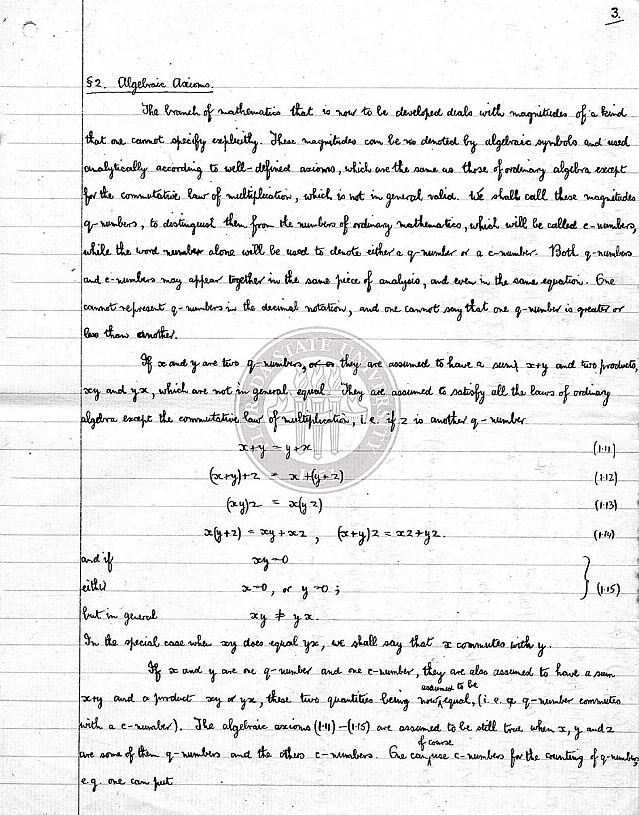 3.
§2. Algebraic Axioms.
The branch of mathematics that is now to be developed deals with magnitudes of a kind
that one cannot specify explicitly. These magnitudes can be denoted by algebraic symbols and used
analytically according to well-defined axioms, which are the same as those of ordinary algebra except
for the commutative law of multiplication, which is not in general valid. We shall call these magnitudes
q-numbers, to distinguish them from the numbers of ordinary mathematics, which will be called c-numbers,
while the word number alone will be used to denote either a q-number or a c-number. Both q-numbers
and c-numbers may appear together in the same piece of analysis, and even in the same equation. One
cannot represent q-numbers in the decimal notation, and one cannot say that one q-number is greater or
less than another.
If x and y are two q-numbers, they are assumed to have a sum x+y and two products,
xy and yx, which are not in general equal. They are assumed to satisfy all the laws of ordinary
algebra except the commutative law of multiplication, i.e. if z is another q-number
x+y = y+x (1·11)
(x+y)+z = x+(y+z) (1·12)
(xy)z = x(yz) (1·13)
x(y+z) = xy+xz, (x+y)z = xz+yz. (1·14)
and if xy=0
either x=0, or y=0; } (1·15)
but in general xy ≠ yx.
In the special case when xy does equal yx, we shall say that x commutes with y.
If x and y are one q-number and one c-number, they are also assumed to have a sum
x+y and a product xy or yx, these two quantities being now assumed to be equal, (i.e. a q-number commutes
with a c-number). The algebraic axioms (1·11)-(1·15) are assumed to be still true when x, y and z
are some of them q-numbers and the others c-numbers. One can of course use c-numbers for the counting of q-numbers,
e.g. one can put
STATE UNIVERSITY